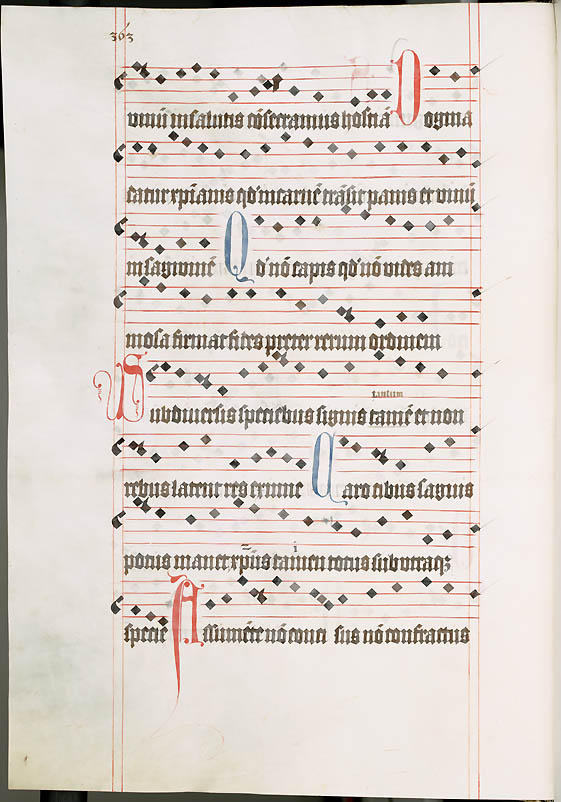 363
vinū in salutis cōsecramus hostiā Dogma
datur xpīanis qd' in carnē trāsit panis et vinū
in sagwinē Qd' nō capis qd' nō vides ani
mosa firmat fides preter rerum ordinem
tantum
Sub diversis speciebus signis tamē et non
rebus latent res eximie Caro cibus sagwis
potus manet xp̄us tamen totus sub utraq3
specie A ssumēte nō conci sus nō confractus